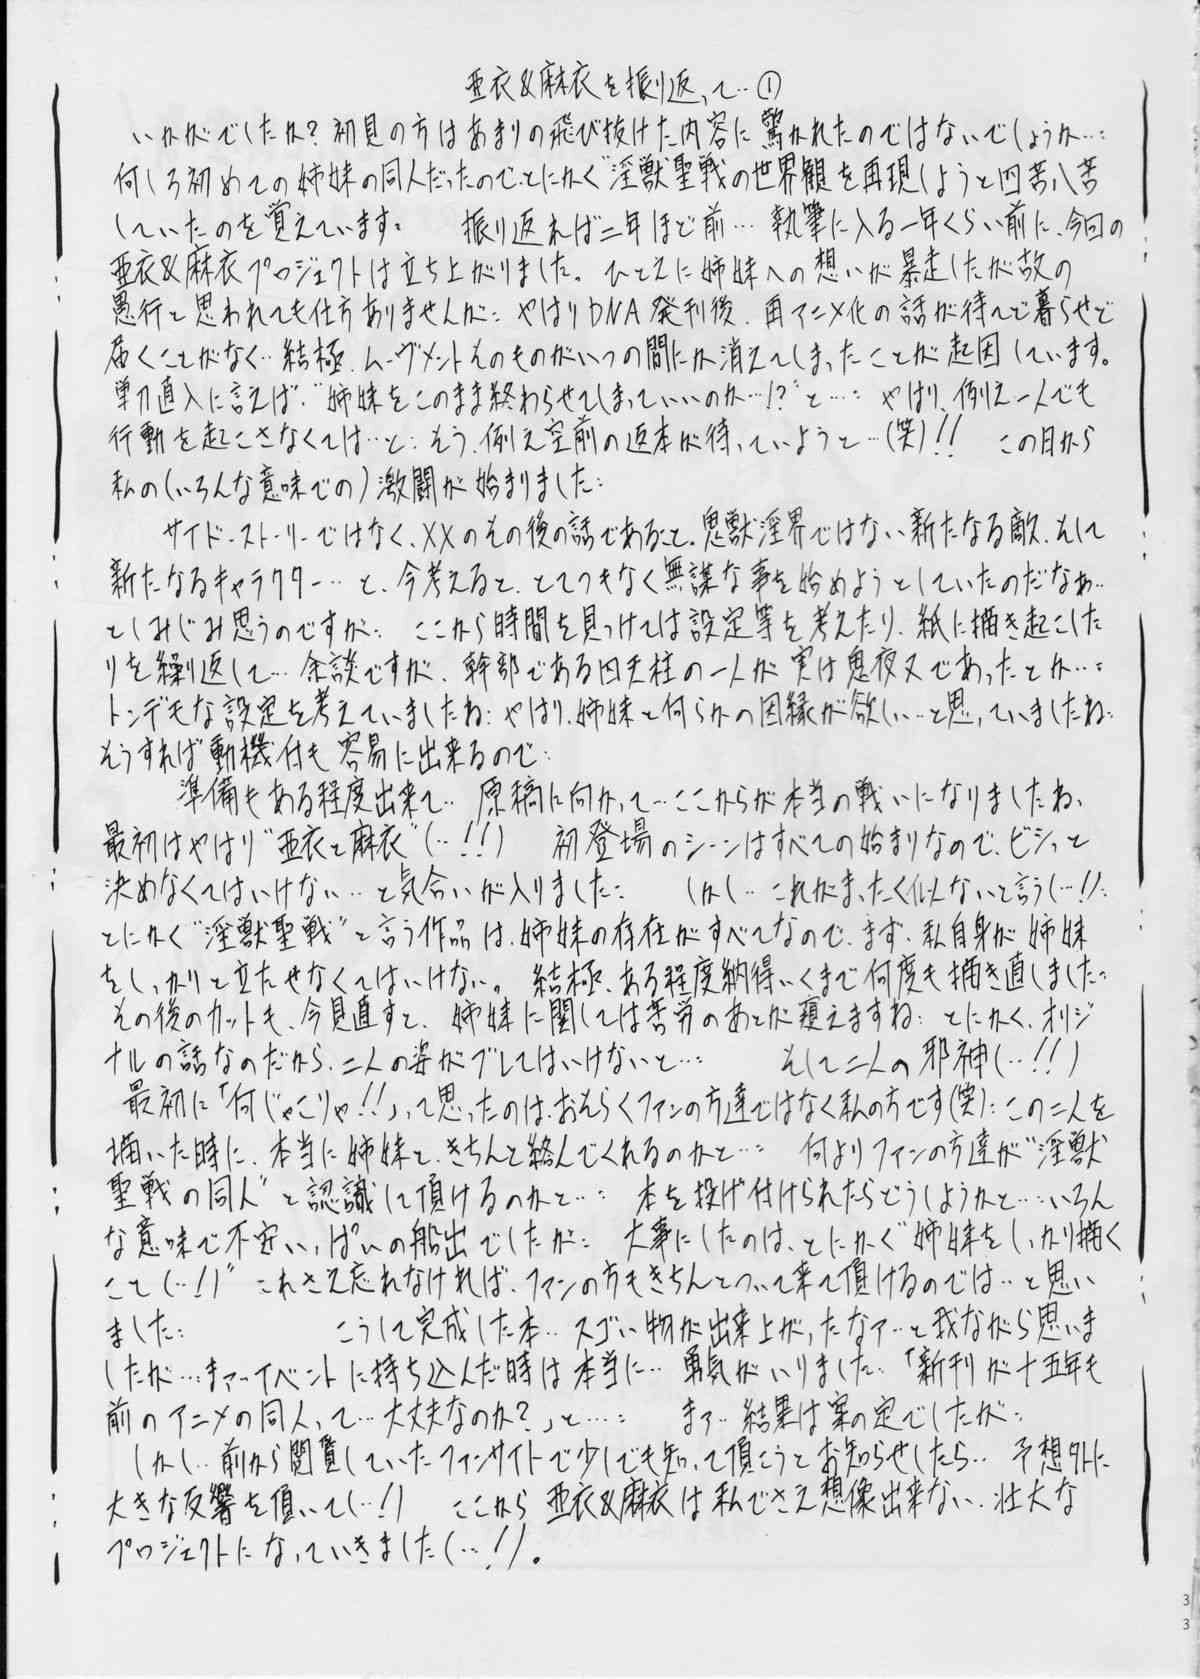 亜衣&麻衣を振り返って…①
いかがでしたか?初見の方はあまりの飛び抜けた内容に驚かれたのではないでしょうか…:
何しろ初めての姉妹の同人だったので、とにかく“淫獣聖戦の世界観を再現しようと四苦八苦
していたのを覚えています: 振り返れば二年ほど前… 執筆に入る一年くらい前に、今回の
亜衣&麻衣プロジェクトは立ち上がりました。ひとえに姉妹への想いが暴走したが故の
愚行と思われても仕方ありませんが: やはりDNA発刊後、再アニメ化の話が待てど暮らせど
届くことがなく… 結極、ムーヴメントそのものがいつの間にか消えてしまったことが起因しています。
単刀直入に言えば、“姉妹をこのまま終わらせてしまっていいのか…!?”と…: やはり、例え一人でも
行動を起こさなくては…と: そう、例え空前の返本が待っていようと…(笑)!! この日から
私の(いろんな意味での)激闘が始まりました:
サイド・ストーリーではなく、XXのその後の話であること。鬼獣淫界ではない新たなる敵、そして
新たなるキャラクター…と、今考えると、とてつもなく無謀な事を始めようとしていたのだなぁ…
としみじみ思うのですが: ここから時間を見つけては設定等を考えたり、紙に描き起こした
りを繰り返して… 余談ですが、幹部である四天柱の一人が実は鬼夜叉であったとか…:
トンデモな設定を考えていましたね: やはり、姉妹と何らかの因縁が欲しい…と思っていましたね:
そうすれば動機付も容易に出来るので:
準備もある程度出来て… 原稿に向かって…ここからが本当の戦いになりましたね、
最初はやはり“亜衣と麻衣”(…!!) 初登場のシーンはすべての始まりなので、ビシッと
決めなくてはいけない…と気合いが入りました: しかし…これがまったく似ないと言う(…!!):
とにかく“淫獣聖戦”と言う作品は、姉妹の存在がすべてなので、まず、私自身が姉妹
をしっかりと立たせなくてはいけない。 結極、ある程度納得いくまで何度も描き直しました:
その後のカットも、今見直すと、姉妹に関しては苦労のあとが窺えますね: とにかく、オリジ
ナルの話なのだから、二人の姿がブレてはいけないと…: そして二人の邪神(…!!)
最初に「何じゃこりゃ!!」って思ったのは、おそらくファンの方達ではなく私の方です(笑): この二人を
描いた時に、本当に姉妹と、きちんと絡んでくれるのかと…: 何よりファンの方達が“淫獣
聖戦の同人”と認識して頂けるのかと…: 本を投げ付けられたらどうしようかと…:いろん
な意味で不安いっぱいの船出でしたが: 大事にしたのは、とにかく“姉妹をしっかり描く
こと(…!)” これさえ忘れなければ、ファンの方もきちんとついて来て頂けるのでは…と思い
ました: こうして完成した本…スゴい物が出来上がったなァ…と我ながら思いま
したが…:まァ…イベントに持ち込んだ時は本当に…勇気がいりました:「新刊が十五年も
前のアニメの同人って…大丈夫なのか?」と…: まァ…結果は案の定でしたが:
しかし…前から閲覧していたファンサイトで少しでも知って頂こうとお知らせしたら… 予想外に
大きな反響を頂いて(…!) ここから亜衣&麻衣は私でさえ想像出来ない、壮大な
プロジェクトになっていきました(…!)。
33